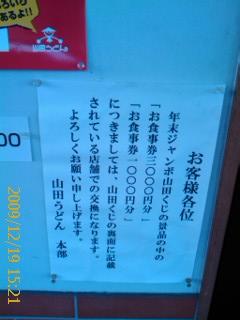 あるよ!!
山田うどん
00
お客様各位
年末ジャンボ山田くじの景品の中の
「お食事券三〇〇〇円分」
「お食事券一〇〇〇円分」
につきましては、山田くじの裏面に記載
されている店舗での交換になります。
よろしくお願い申し上げます。
山田うどん 本部
2009/12/19 15:21